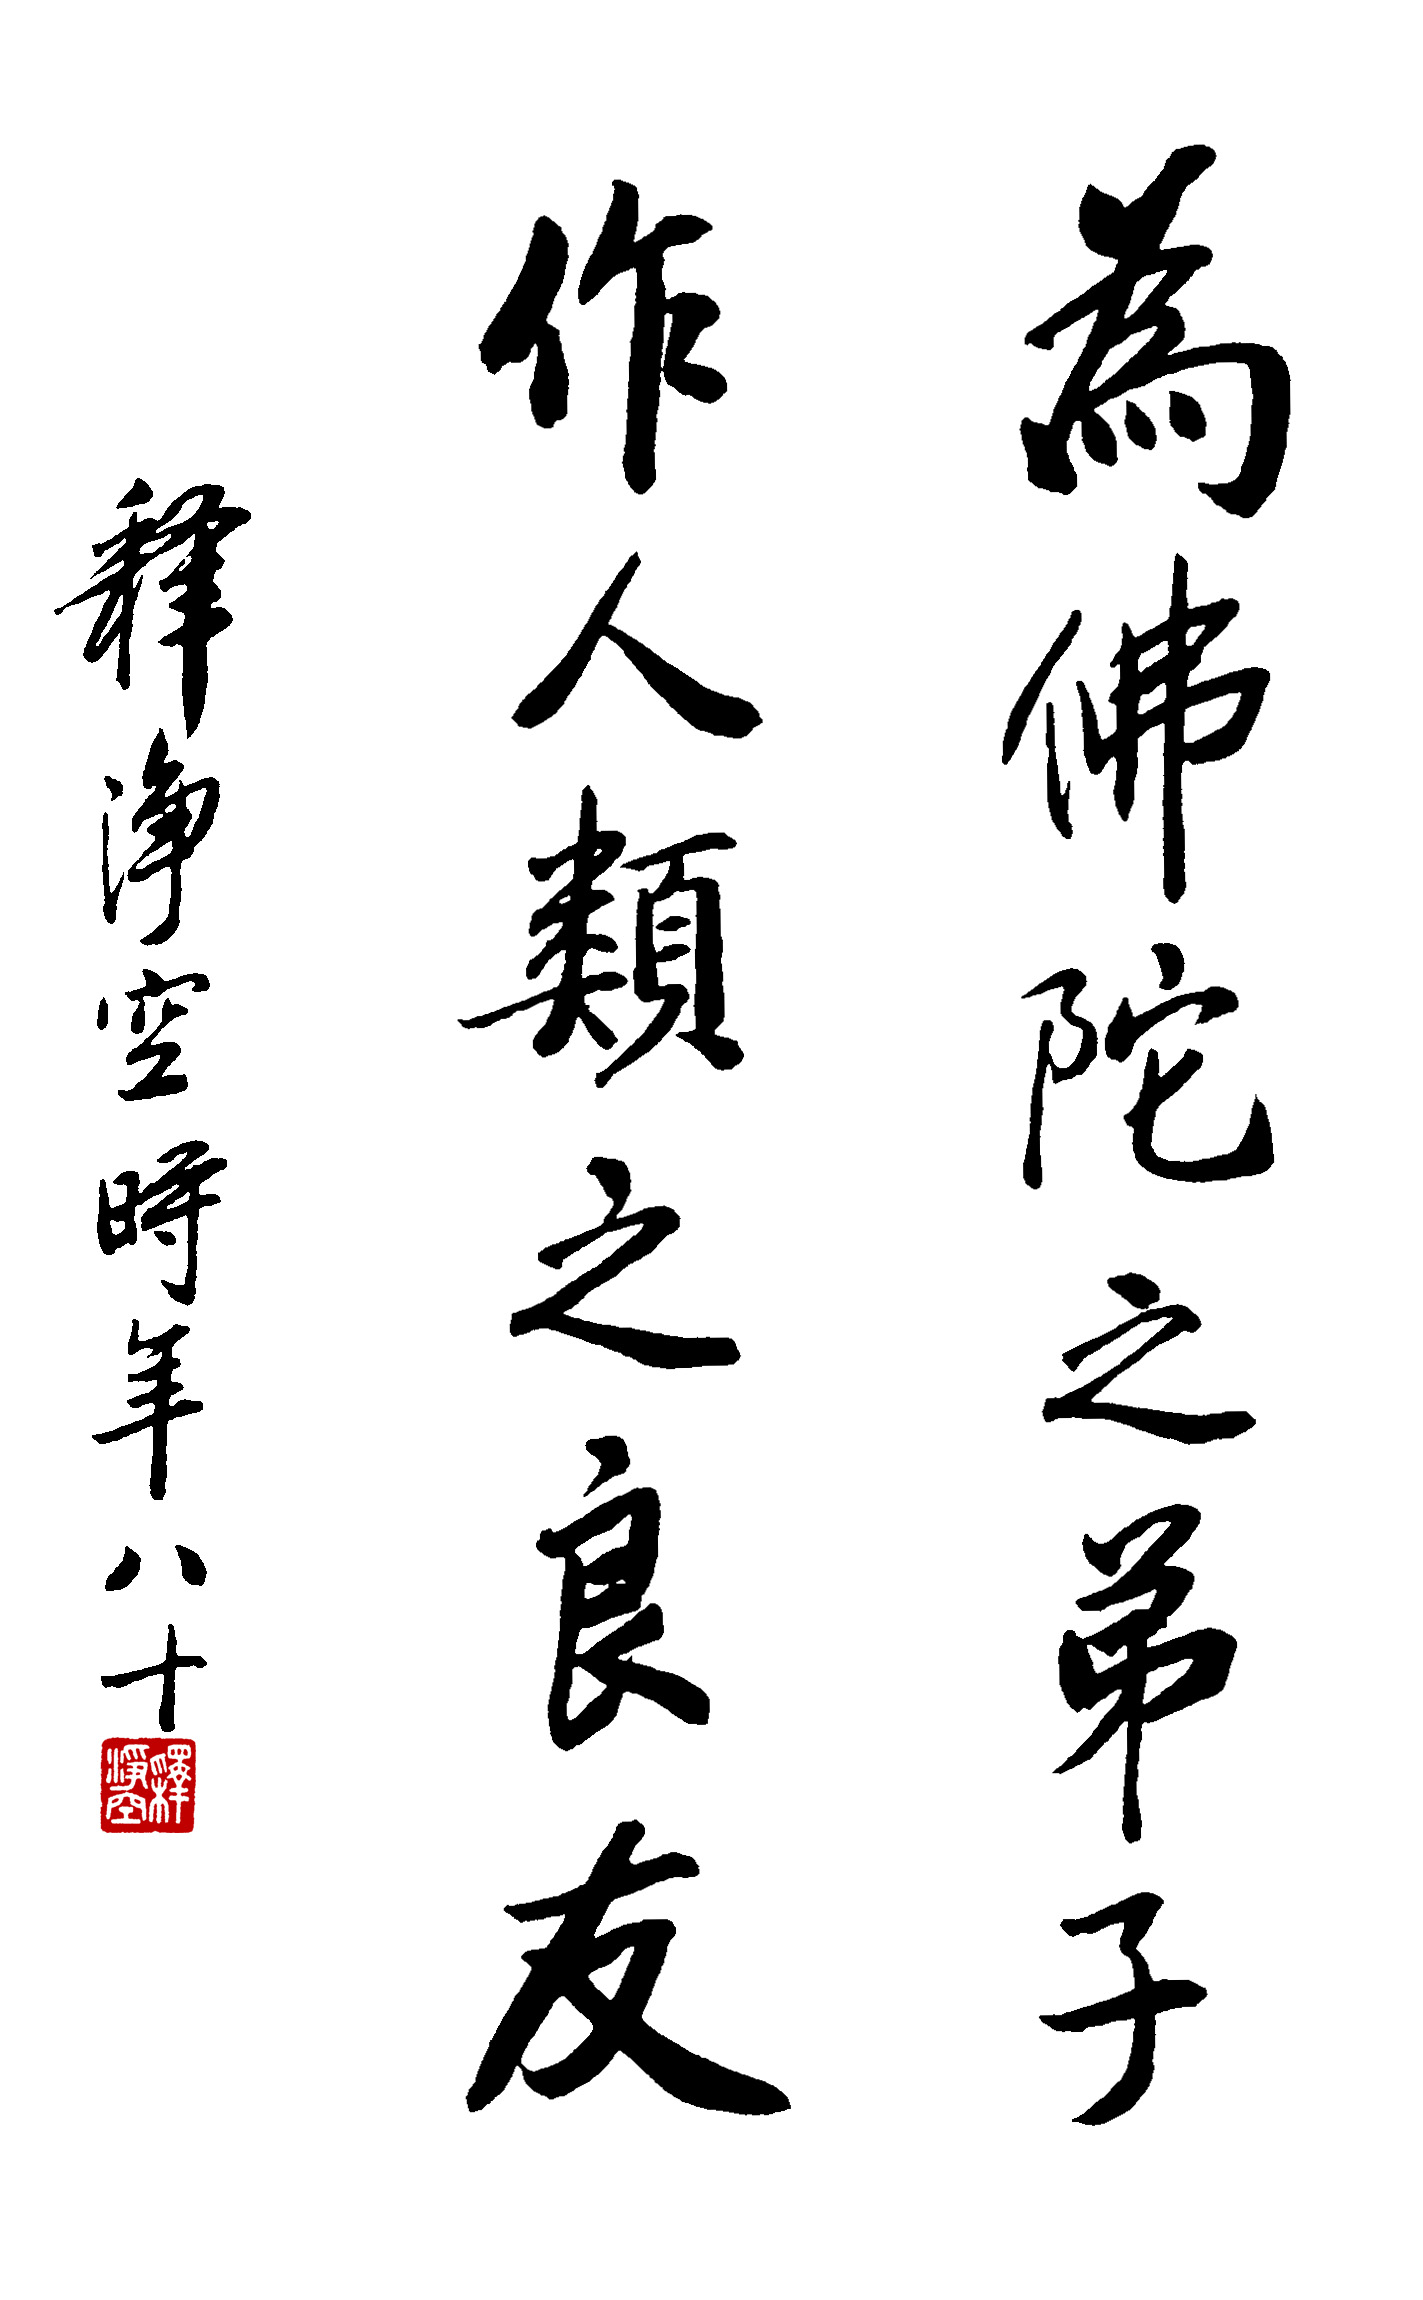 為佛陀之弟子
作人類之良友
釋淨空時年八十
釋淨空